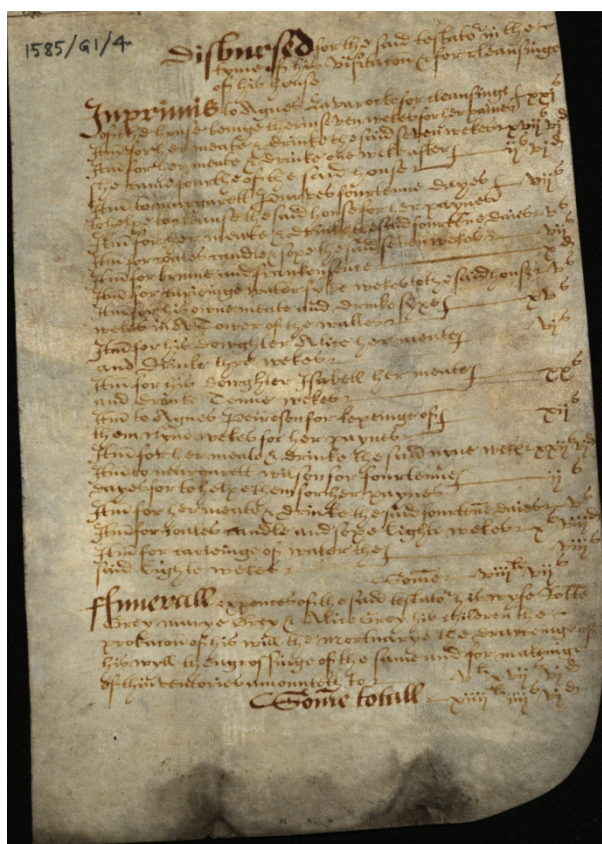 1585/G1/4
Disbursed for the said testator in the
tyme of his visitacon & for cleansinge
of his house
Inprimis to Agnes for cleansinge xxjs
of the house beinge therin seven wekes for her paines
Itm for her meate & drinke the said seven wekes xvijs vjd
Itm for her meate & drinke one weke after ijs vjd
she came fourthe of the said house
Itm to margarett fourtenne dayes vijs
to helpe to cleanse the said house for her paynes
Itm for her meate & drinke the said fourtene daies vs
Itm for coales candle & sope the said seven wekes vijs
Itm for brume and frankensence xd
Itm for carienge water wekes to the said house vs
Itm for his owne meate and drinke syxe xvs
wekes in A Tower of the walles
Itm for his doughter Alice her meate vjs
and Drinke thre wekes
Itm for his doughter Isabell her meate xxs
and drinke Tenne wekes
Itm to Agnes Peireson for kepeinge of xijs
them nyne wekes for her paynes
Itm for her meate & drinke the said nyne wekes xxijs vjd
Itm to margarett wilson for fourtenne ijs
dayes for to helpe them for her paynes
Itm for her meate & drinke the said fourtene daies vs
Itm for coales candle and sope Eighte wekes xs viijd
Itm for carieinge of water the viijs
said Eighte wekes
Some viijli vijs
ffunerall expences of the said testator & his wyfe
Grey marye Grey & Alice Grey his children the
probacon of his will the mortuarye the draweinge of
his wyll the ingrossinge of the same and for makinge
of thinventories amounteth to vli xvijs vjd
Some totall xiiijli iiijs vjd